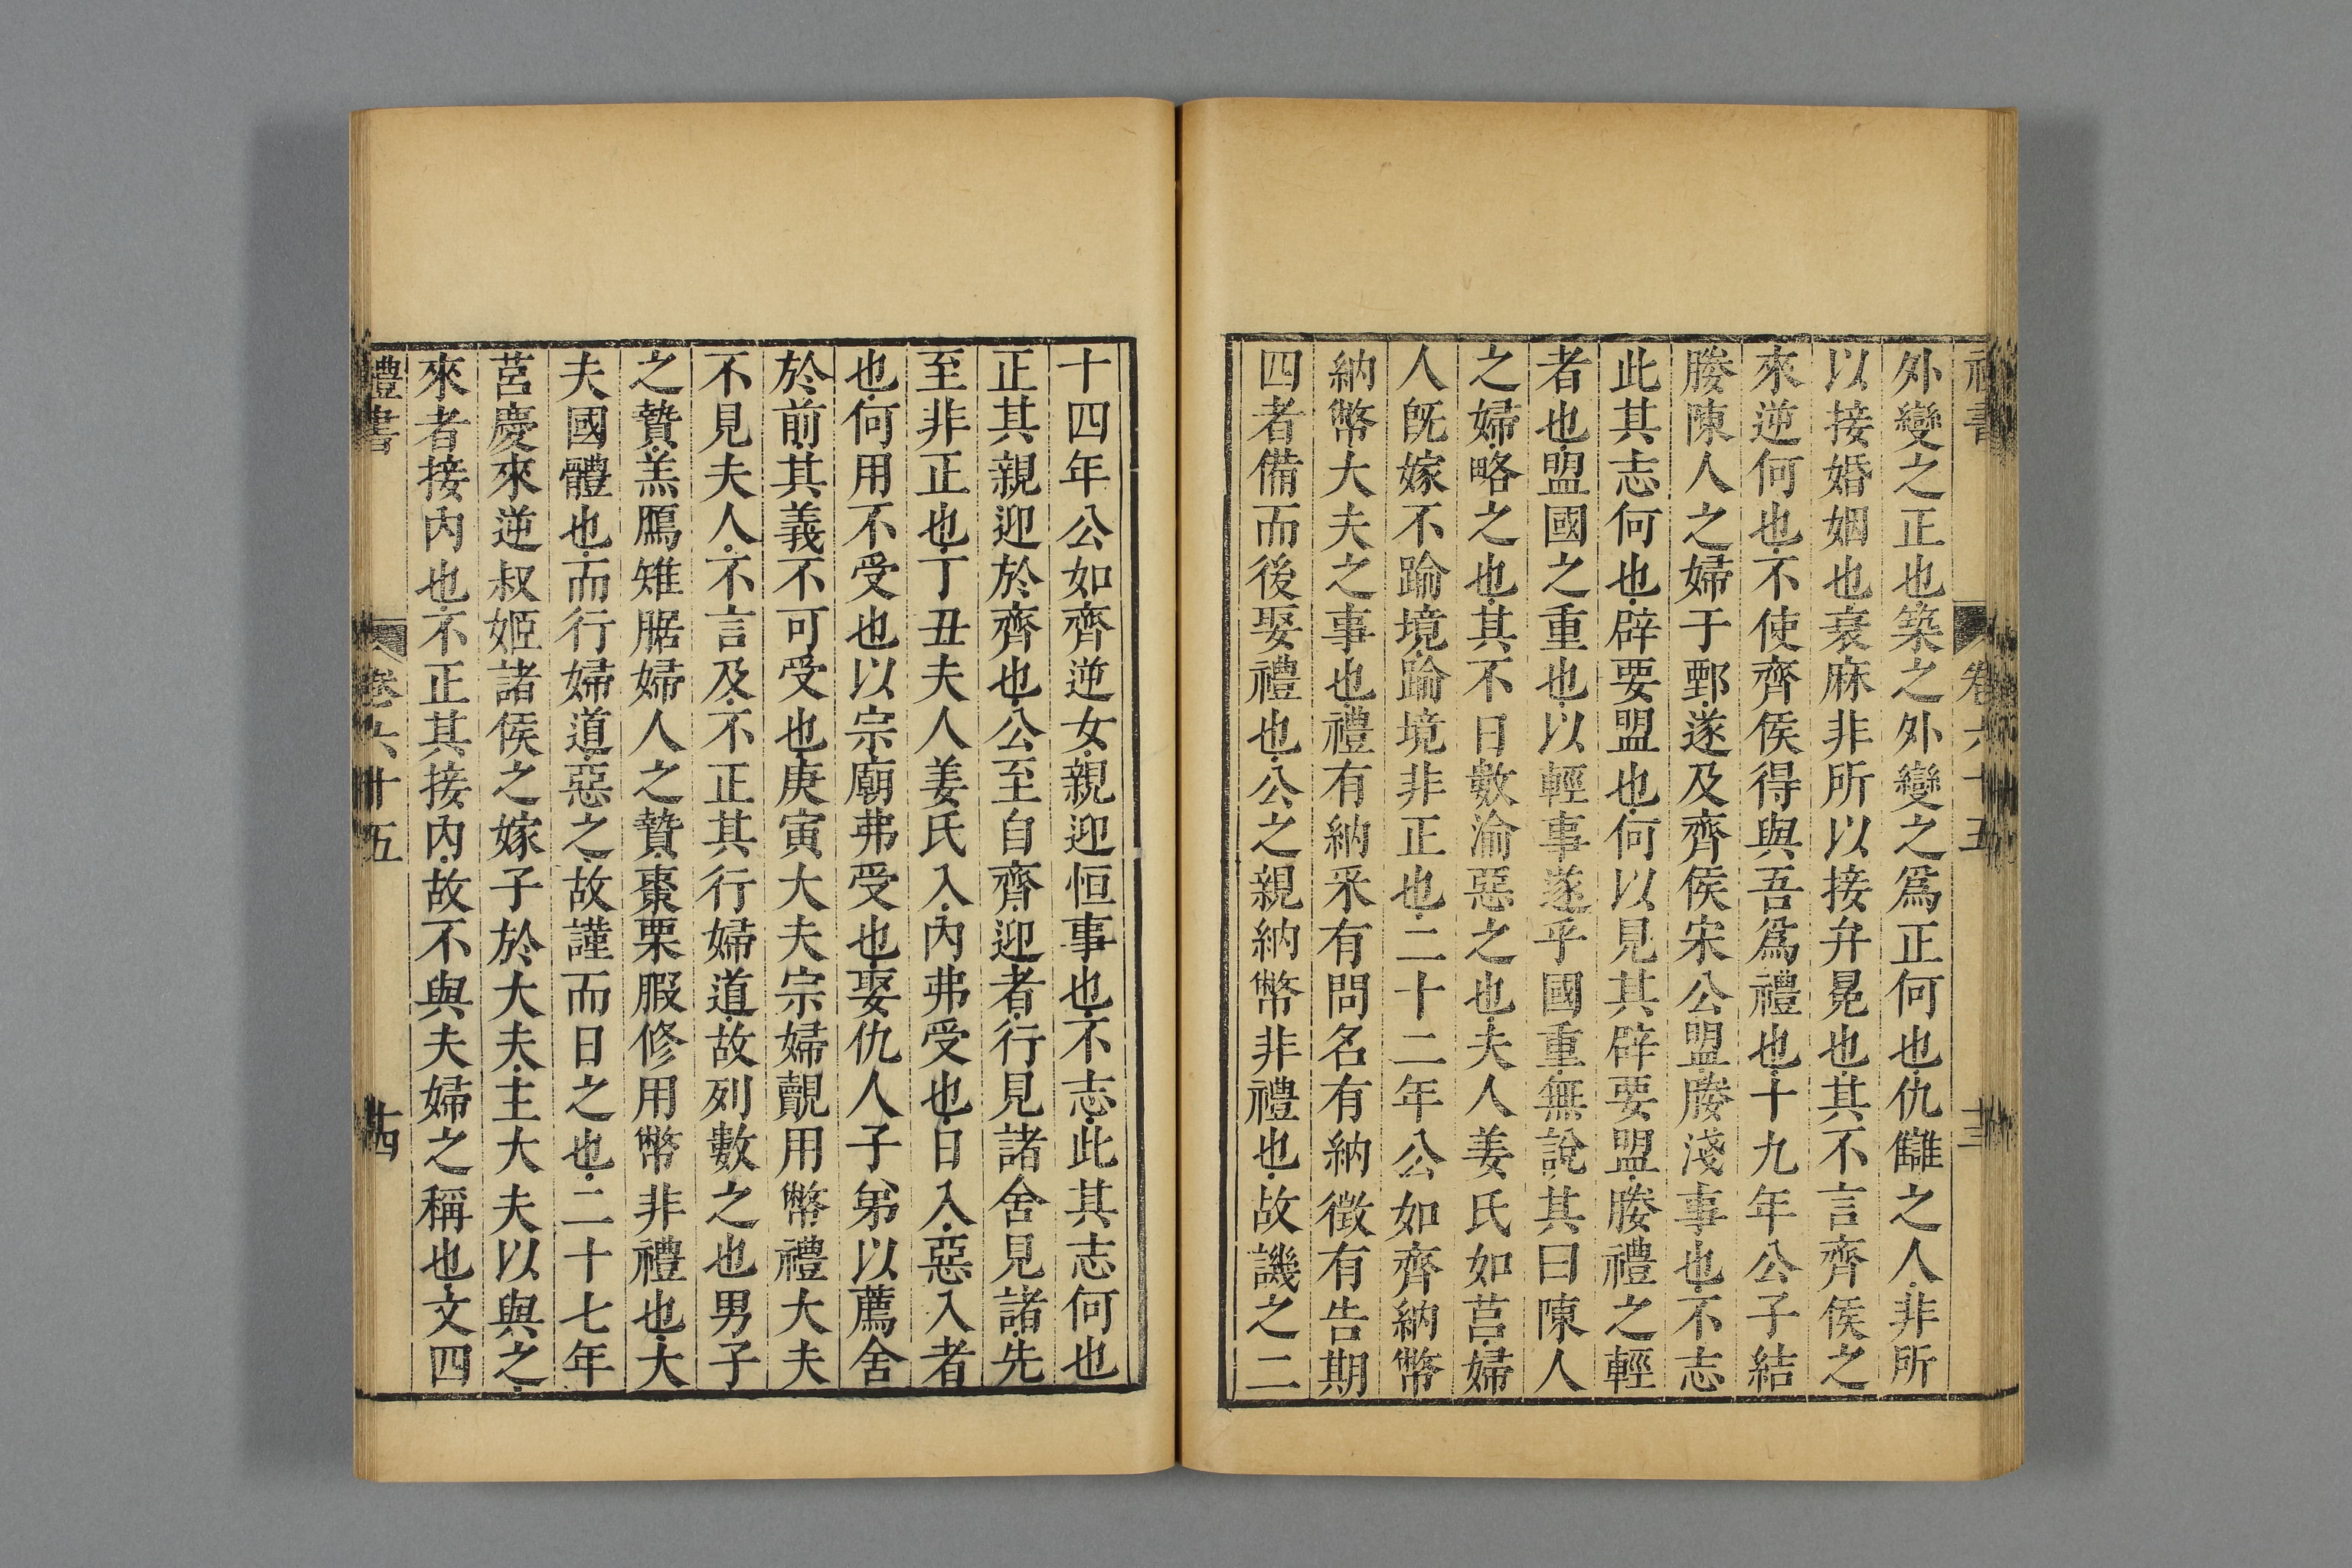 禮書 卷六十五 十三
外變之正也築之外變之爲正何也仇讎之人非所
以接婚姻也衰麻非所以接弁冕也其不言齊侯之
來逆何也不使齊侯得與吾爲禮也十九年公子結
媵陳人之婦于鄄遂及齊侯宋公盟媵淺事也不志
此其志何也辟要盟也何以見其辟要盟媵禮之輕
者也盟國之重也以輕事遂乎國重無說其曰陳人
之婦略之也其不日數渝惡之也夫人姜氏如莒婦
人旣嫁不踰境踰境非正也二十二年公如齊納幣
納幣大夫之事也禮有納釆有問名有納徵有告期
四者備而後娶禮也公之親納幣非禮也故譏之二
十四年公如齊逆女親迎恒事也不志此其志何也
正其親迎於齊也公至自齊迎者行見諸舍見諸先
至非正也丁丑夫人姜氏入內弗受也日入惡入者
也何用不受也以宗廟弗受也娶仇人子弟以薦舍
於前其義不可受也庚寅大夫宗婦覿用幣禮大夫
不見夫人不言及不正其行婦道故列數之也男子
之贄羔鴈雉腒婦人之贄棗栗腶修用幣非禮也大
夫國體也而行婦道惡之故謹而日之也二十七年
莒慶來逆叔姬諸侯之嫁子於大夫主大夫以與之
來者接內也不正其接內故不與夫婦之稱也文四
禮書 卷六十五 十四